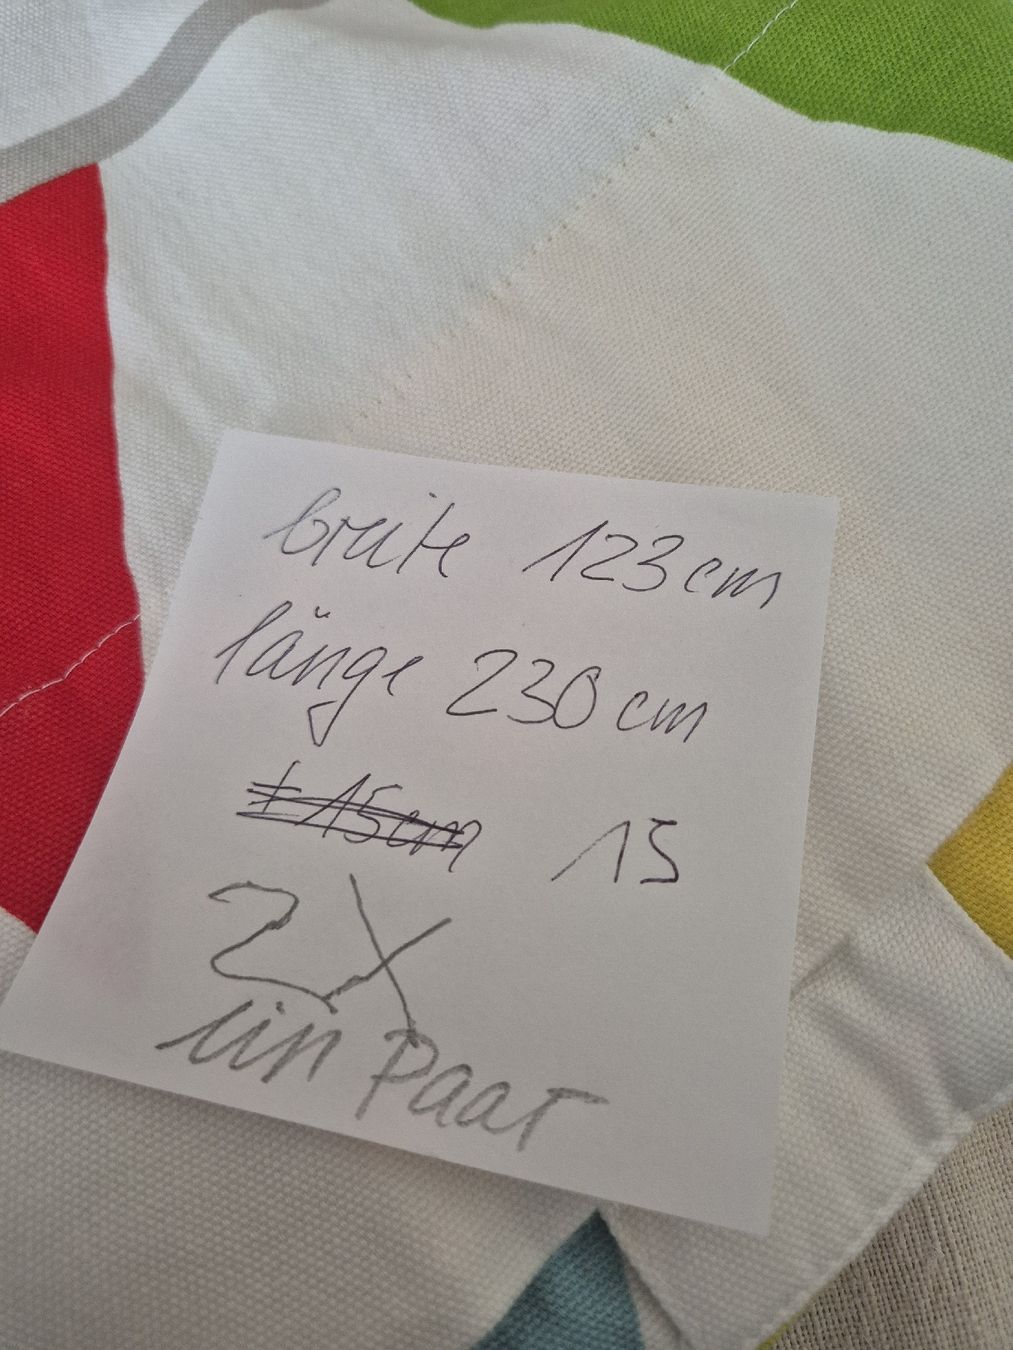 breite 123 cm
länge 230 cm
± 15 cm 15
2X
ein Paar